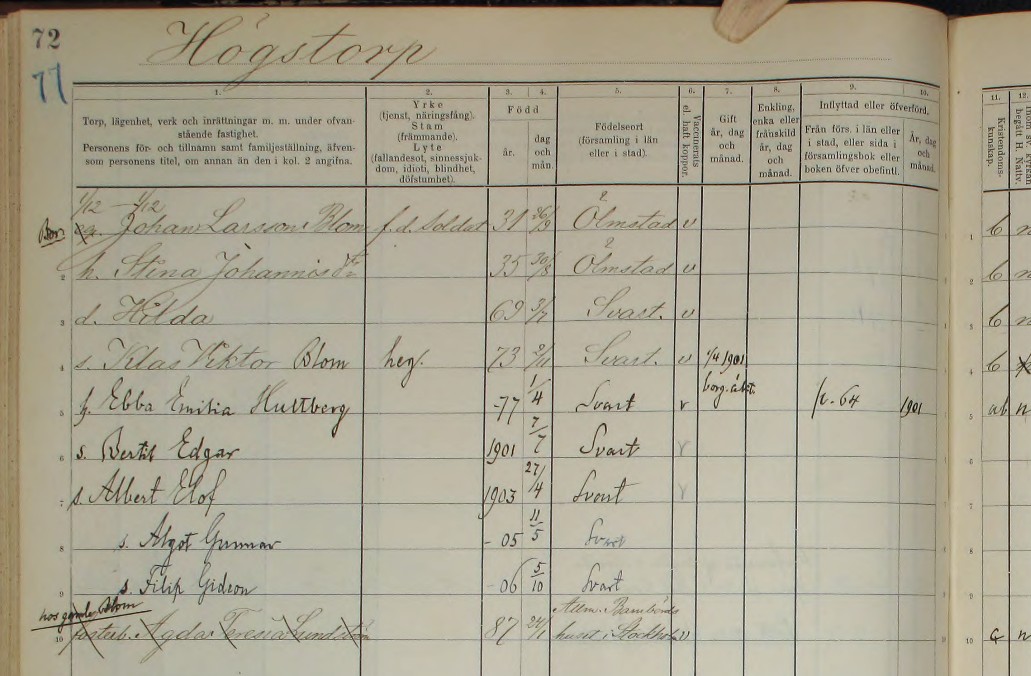 72
Högstorp
77
1.
2.
3.
4.
5.
6.
7.
8.
9.
10.
11.
12.
Torp, lägenhet, verk och inrättningar m. m. under ofvan-
stående fastighet.
Personens för- och tillnamn samt familjeställning, äfven-
som personens titel, om annan än den i kol. 2 angifna.
Yrke
(tjenst, näringsfång).
Stam
(främmande).
Lyte
(fallandesot, sinnessjuk-
dom, idioti, blindhet,
döfstumhet).
Född
år.
dag
och
mån.
Födelseort
(församling i län
eller i stad).
Vaccinerats
el. haft koppor.
Gift
år, dag
och
månad.
Enkling,
enka eller
frånskild
år, dag
och
månad.
Inflyttad eller öfverförd.
Från förs. i län eller
i stad, eller sida i
församlingsbok eller
boken öfver obefintl.
År, dag
och
månad.
Kristendoms-
kunskap.
begått H. Nattv.
1/12 – 1/12
Johan Larsson Blom f.d. Soldat 31 26/9 Ölmstad v b
2 h. Stina Johannisdr 35 30/8 Ölmstad v b
3 d. Hilda 69 3/7 Svart. v b
4 s. Klas Viktor Blom heg. 73 2/11 Svart. v 1/4 1901 b
borg. äkt.
5 h. Ebba Emilia Hultberg -77 1/4 Svart v 64 1901 ab
6 s. Bertil Edgar 1901 7/7 Svart v
7 s. Albert Elof 1903 27/4 Svart v
8 s. Algot Gunnar - 05 11/5 Svart
9 s. Filip Gideon - 06 5/10 Svart
hos gamle Blom
10 fosterb. Agda Teresia Lundström 87 24/1 Allm. Barnbörds
huset i Stockholm v